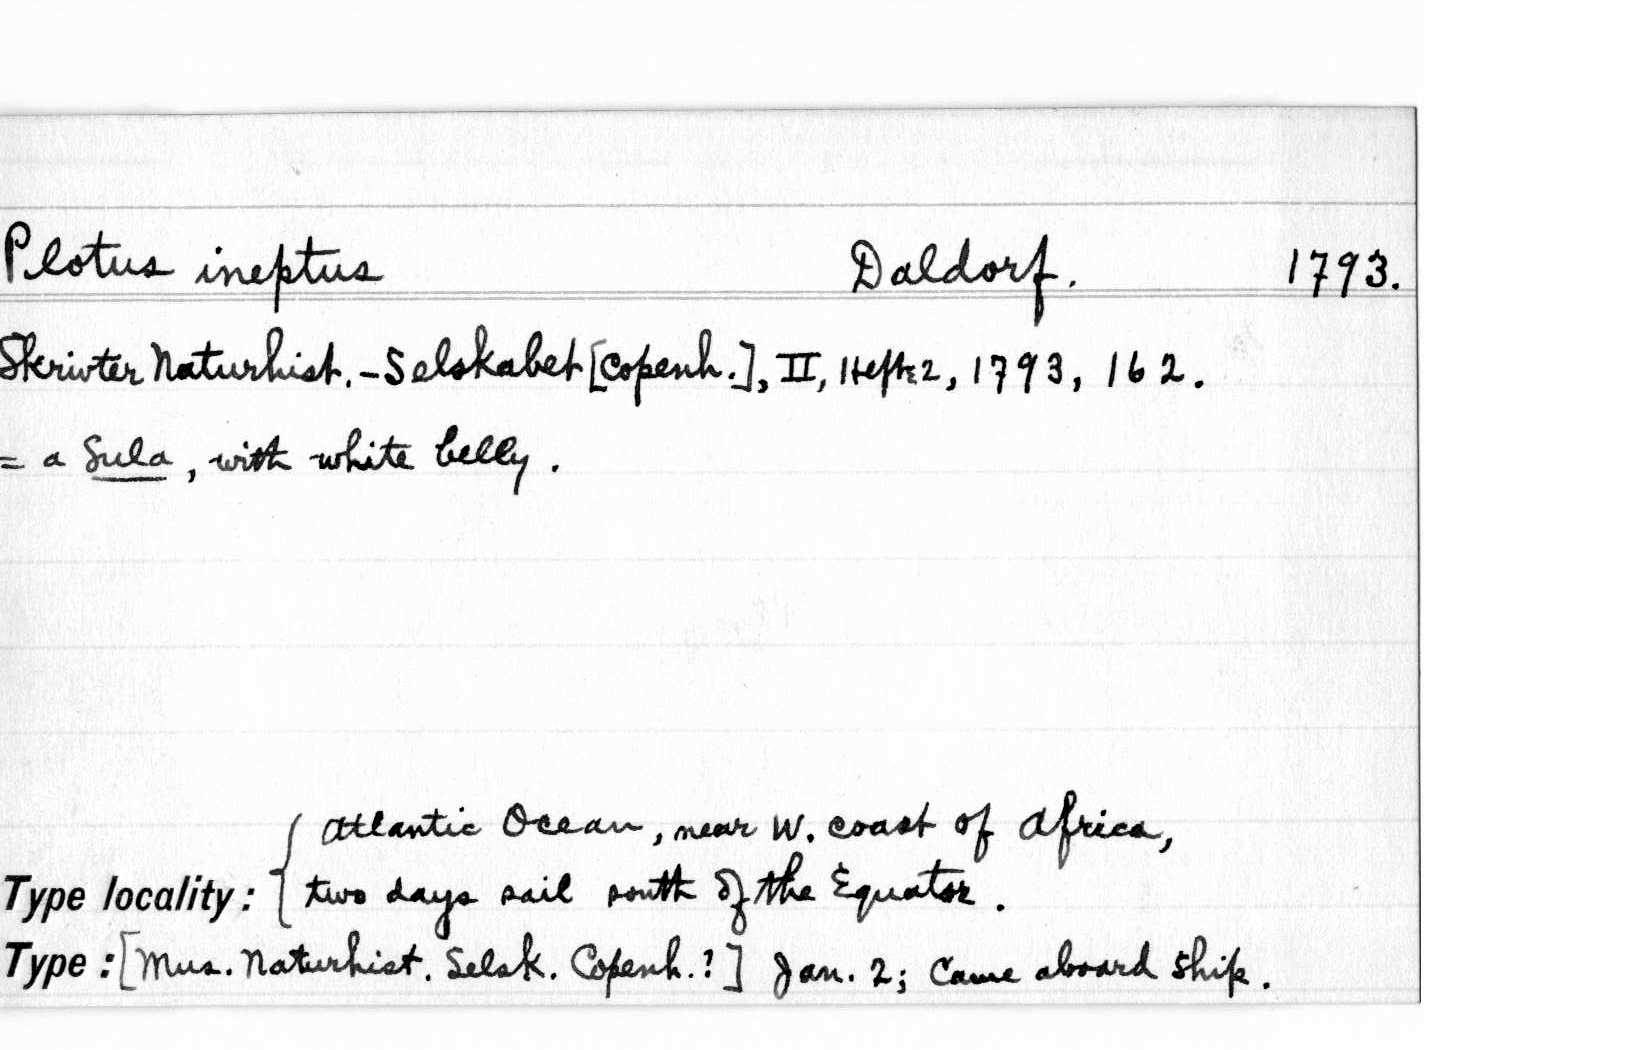 Plotus ineptus Daldorf. 1793.
Skrivter Naturhist.-Selskabet [Copenh.], II, Hefte 2, 1793, 162.
= a Sula, with white belly.
Atlantic Ocean, near W. coast of Africa,
Type locality: { two days sail south of the Equator.
Type: [Mus. Naturhist. Selsk. Copenh.?] Jan. 2; Came aboard ship.